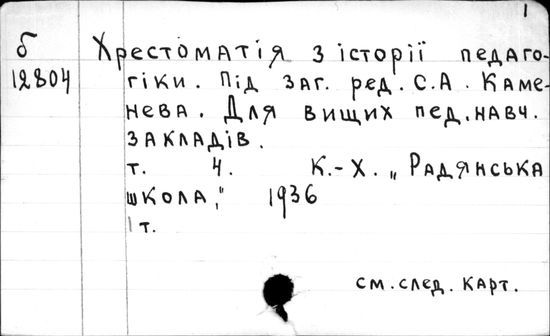 1
б Хрестоматія з історії педаго-
12804 гіки. Під заг. ред. С.А. Каме-
нева. Для вищих пед. навч.
закладів.
т. 4. К.-Х. „Радянська
школа," 1936
1 т.
см. след. карт.